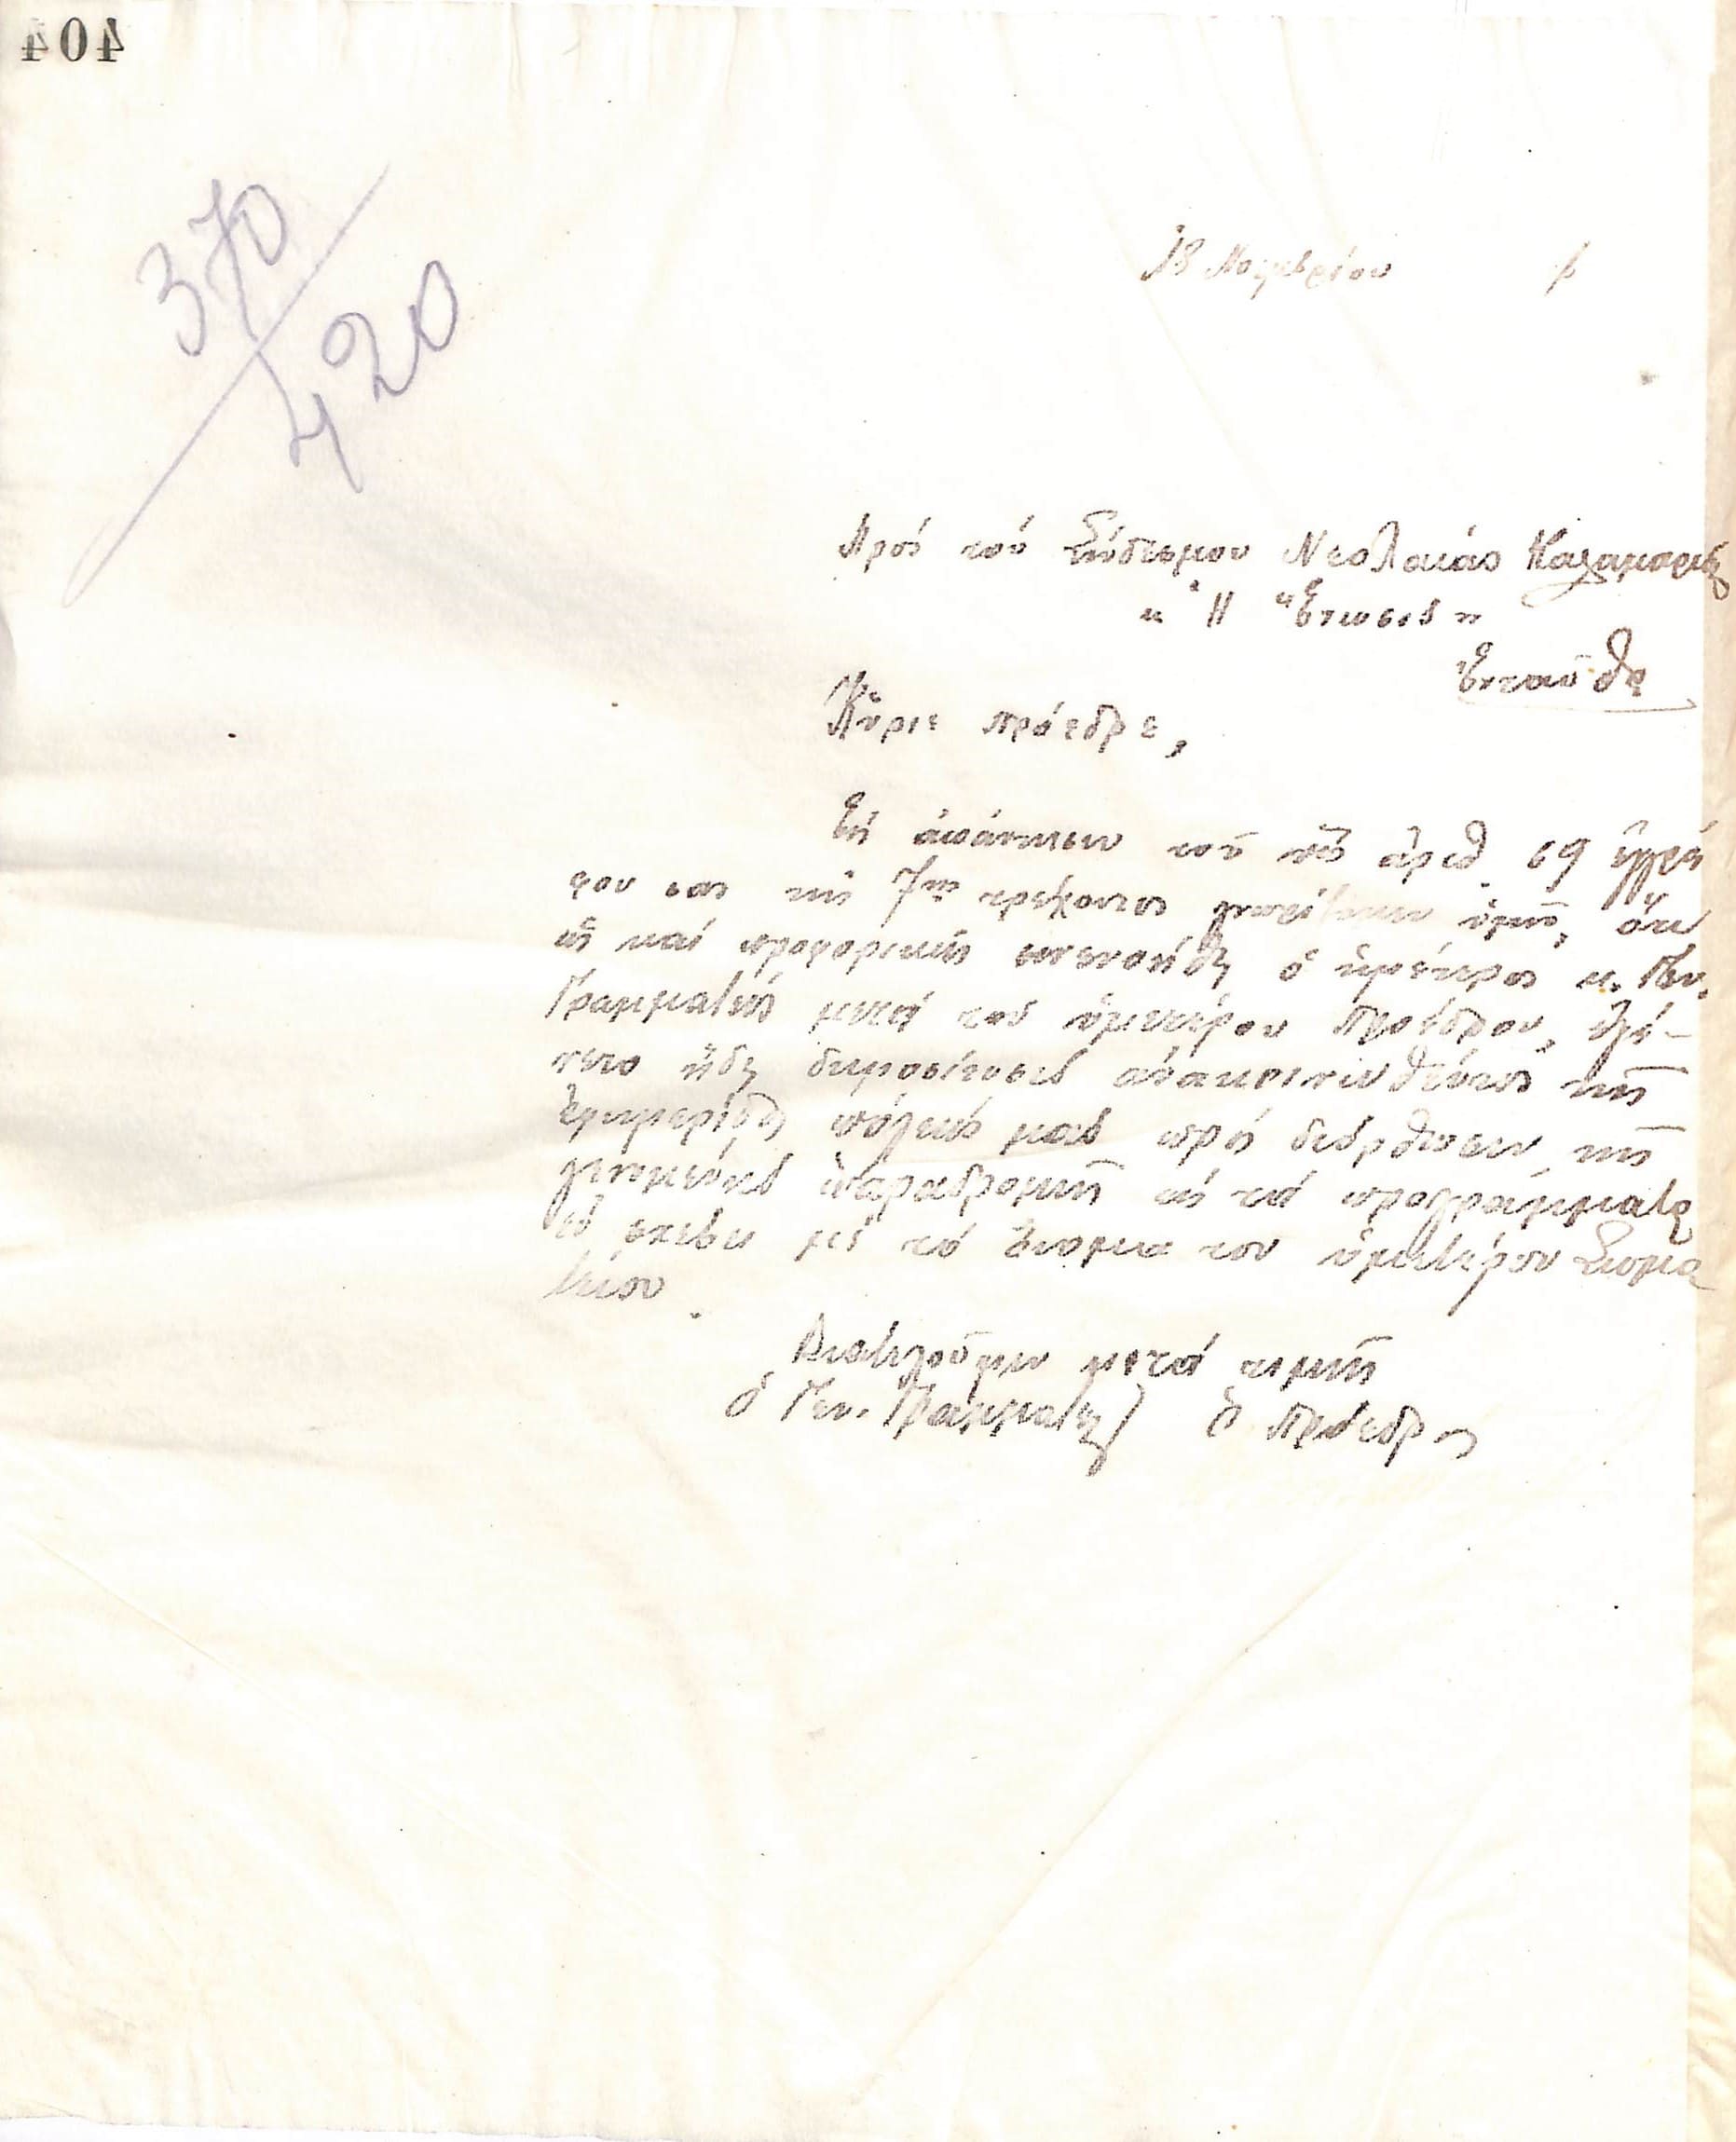 404
370
420
18 Νοεμβρίου
Πρός τόν Σύνδεσμον Νεολαίας Καλαμαριᾶς
« Ἡ Ἕνωσις »
Ἐνταῦθα
Κύριε πρόεδρε,
Εἰς ἀπάντησιν τοῦ ὑπ' ἀριθ. 69 ἐγγρά
φου σας τῆς 7ης τρέχοντος γνωρίζομεν ὑμῖν, ὅτι
ὡς καί προφορικῶς συνενοήθη ὁ ἡμέτερος κ. Γεν.
Γραμματεύς μετά τοῦ ὑμετέρου Προέδρου, ἐγέ-
νετο ἤδη δημοσίευσις τῆς
πόλεώς μας πρός διόρθωσιν τῆς
γενομένης παραδρομῆς εἰς τά προγράμματα
ἐν σχέσει μέ τό ὄνομα τοῦ ὑμετέρου Σωμα
τείου.
Διατελοῦμεν μετά τιμῆς
Ὁ Γεν. Γραμματεύς Ὁ Πρόεδρος